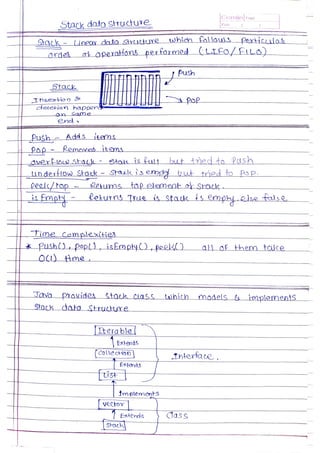 Stack data structure
Stack - Linear data structure which follows particular
order of operations performed (LIFO/FILO)
Push
Stack
Insertion &
deletion happens
on same
end.
POP
Push - Adds items
Pop - Removes items
overflow stack - stack is full but tried to Push
underflow stack - Stack is empty but tried to pop.
peek/top - Returns top element of stack.
is Empty - Returns True is stack is empty else false.
Time Complexities
* Push(), pop(), isEmpty(), peek() all of them take
O(1) time.
Java provides stack class which models & implements
Stack data structure
Iterable
Extends
Collection
Interface.
Extends
List
Implements
Vector
Extends
Class
Stack